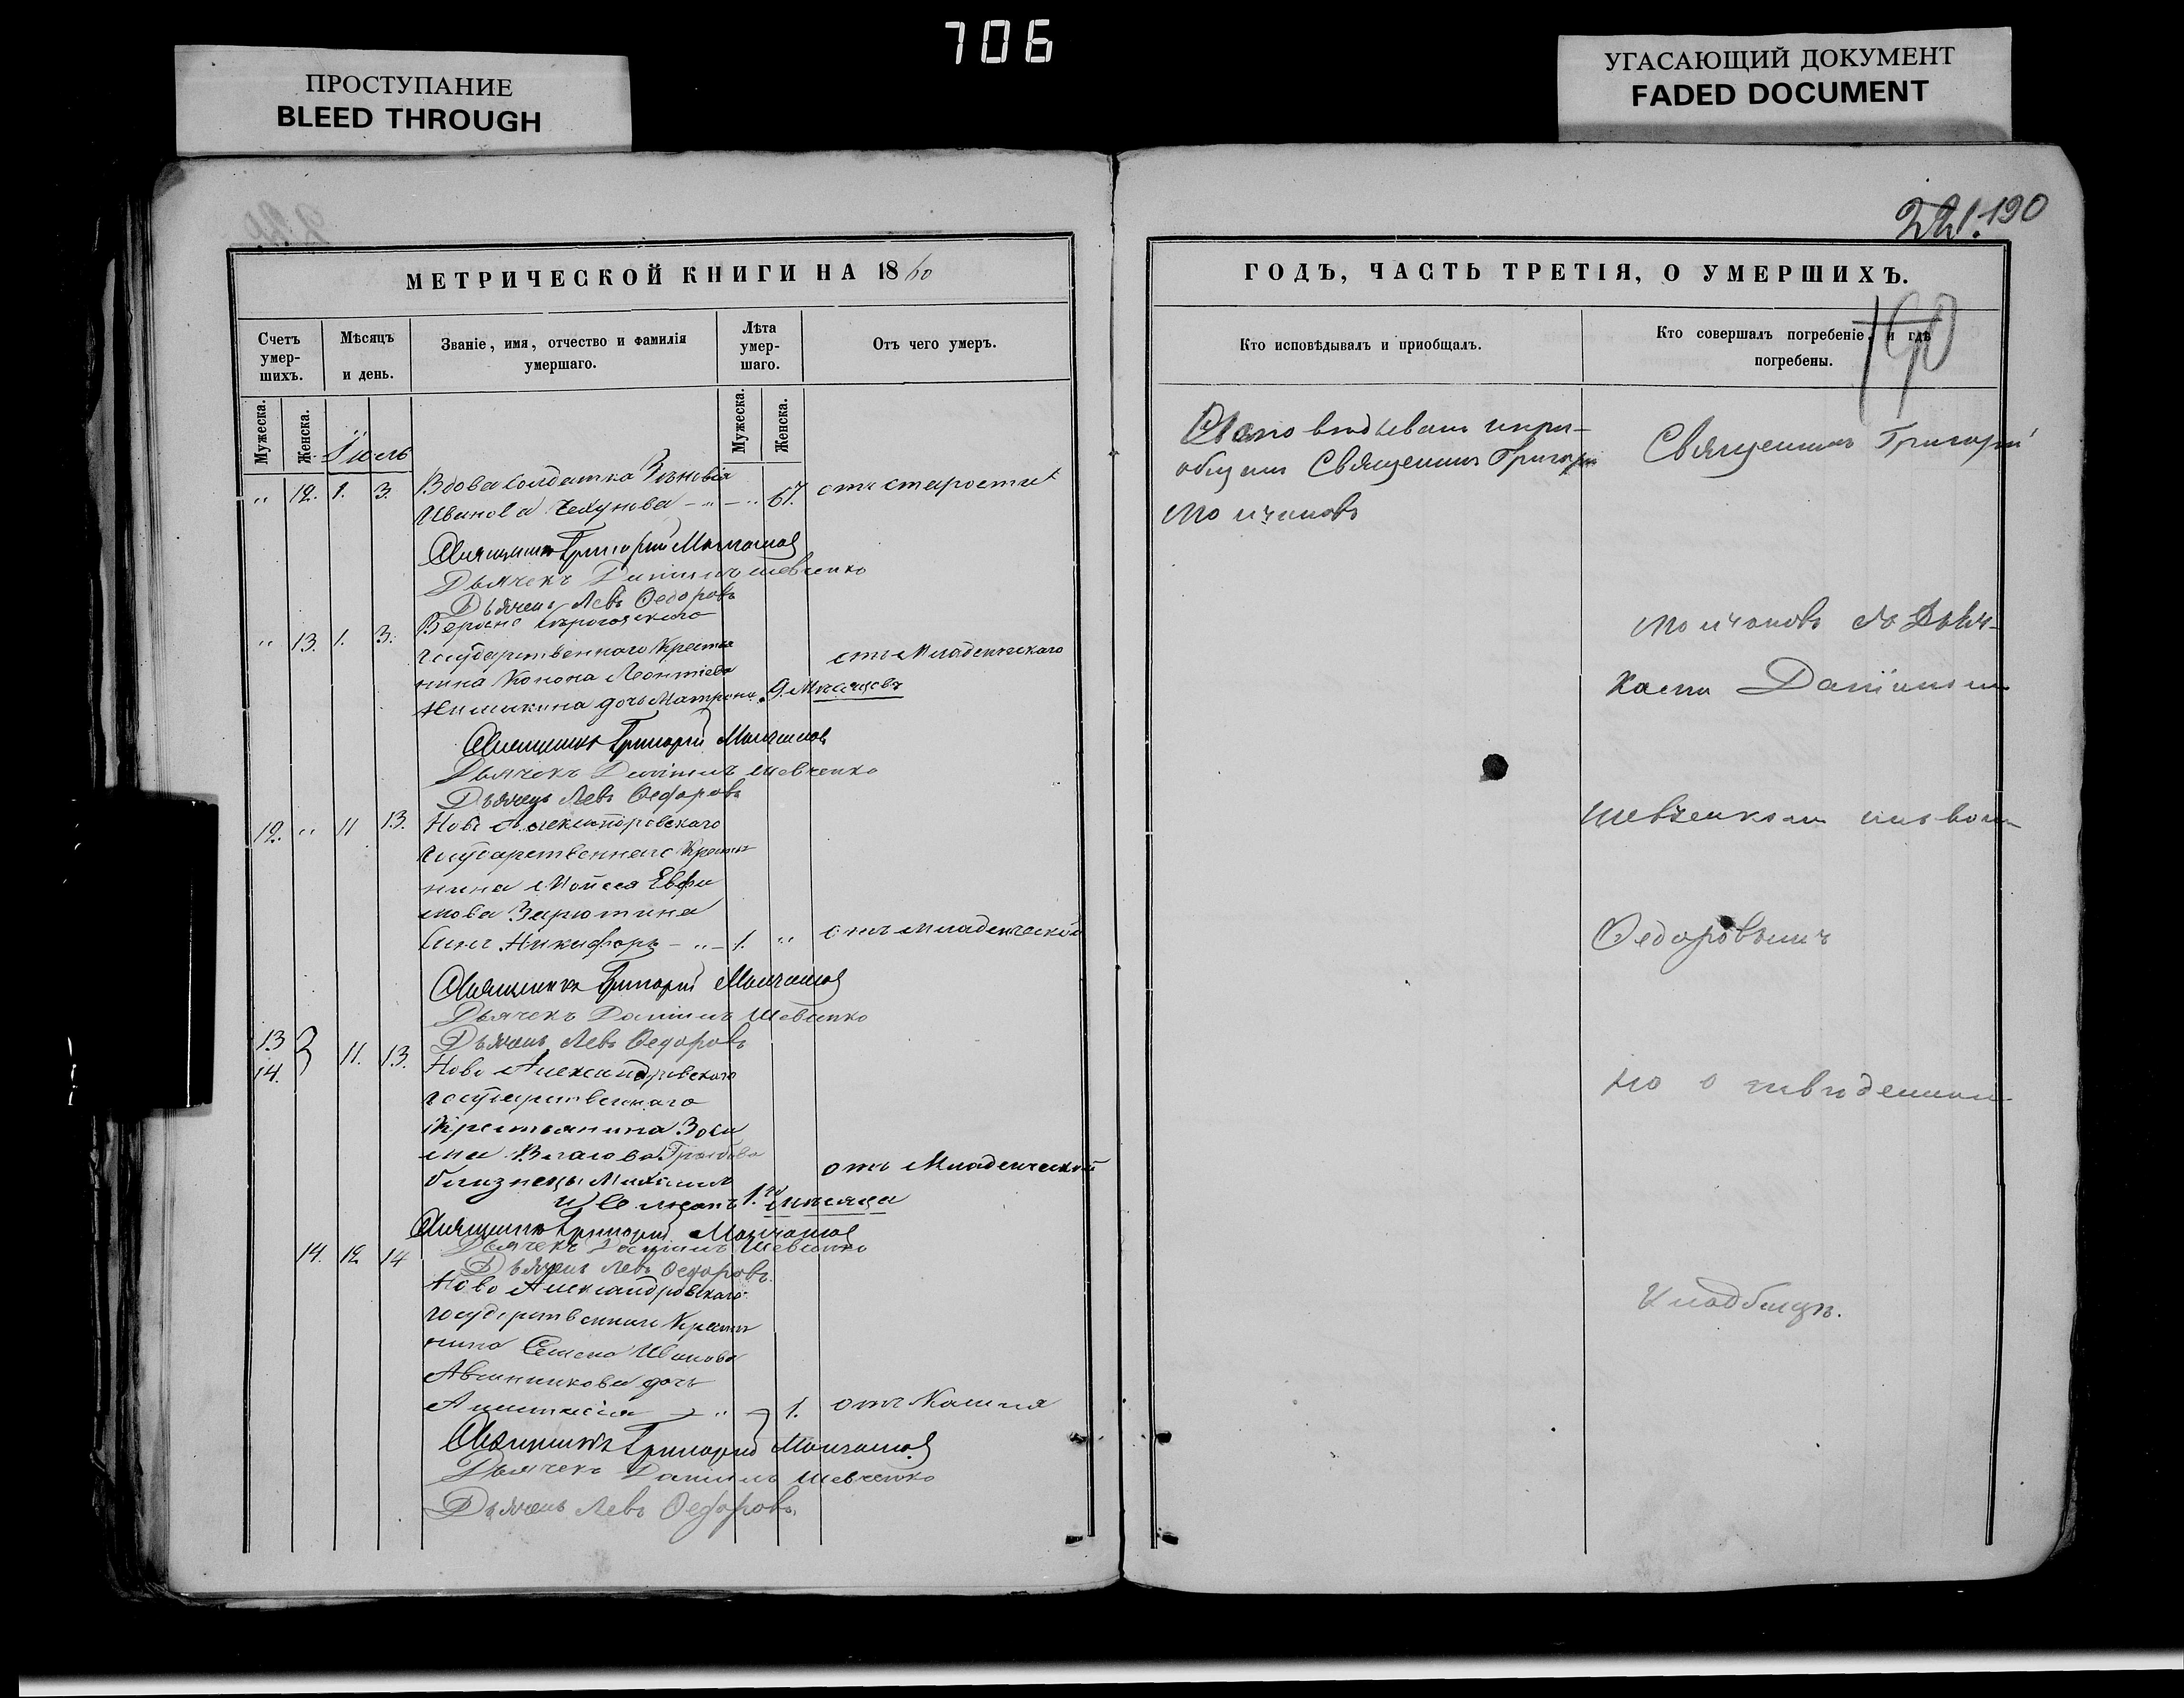 706
ПРОСТУПАНИЕ
BLEED THROUGH
УГАСАЮЩИЙ ДОКУМЕНТ
FADED DOCUMENT
190
МЕТРИЧЕСКОЙ КНИГИ НА 1860
Счетъ умер-шихъ.
Мѣсяцъ и день.
Званіе, имя, отчество и фамилія умершаго.
Лѣта умер-шаго.
Отъ чего умеръ.
Мужеска.
Женска.
Мужеска.
Женска.
Іюль
" 12. 1. 3. Вдова Солдатка Зѣновія
Иванова - " - " 67. отъ старости
Священникъ Григорій Молчановъ
Дьячекъ Даніилъ Шевченко
Дьячекъ Левъ Ѳедоровъ
" 13. 1. 3.
государственнаго Крестья
нина Конона Леонтіева
дочь Матрона 9. Мѣсяцевъ отъ Младенческаго
Священникъ Григорій Молчановъ
Дьячекъ Даніилъ Шевченко
Дьячекъ Левъ Ѳедоровъ
12. " 11 13. Ново Александровскаго
Государственнаго Крестья
нина Моисея Евфи
мова Зарютина
Сынъ Никифоръ - " - 1. " отъ младенческой
Священникъ Григорій Молчановъ
Дьячекъ Даніилъ Шевченко
Дьячекъ Левъ Ѳедоровъ
13
14. } 11. 13. Ново Александровскаго
государственнаго
Крестьянина Зоси
мы
близнецы Михаилъ отъ Младенческой
и 1.го мѣсяца
Священникъ Григорій Молчановъ
Дьячекъ Даніилъ Шевченко
14. 12 14 Дьячекъ Левъ Ѳедоровъ.
Ново Александровскаго
государственнаго Крестья
нина Семена Иванова
Авшинникова дочь
" 1. отъ Кашля
Священникъ Григорій Молчановъ
Дьячекъ Даніилъ Шевченко
Дьячекъ Левъ Ѳедоровъ.
ГОДЪ, ЧАСТЬ ТРЕТІЯ, О УМЕРШИХЪ.
190
Кто исповѣдывалъ и приобщалъ.
Кто совершалъ погребеніе, и гдѣ погребены.
Исповѣдывалъ и при-
общалъ Священникъ Григорій
Молчановъ
Священникъ Григорій
Молчановъ съ Дьяч-
ками Даніиломъ
Шевченкомъ и Львомъ
Ѳедоровымъ
на отведенномъ
Кладбищѣ.